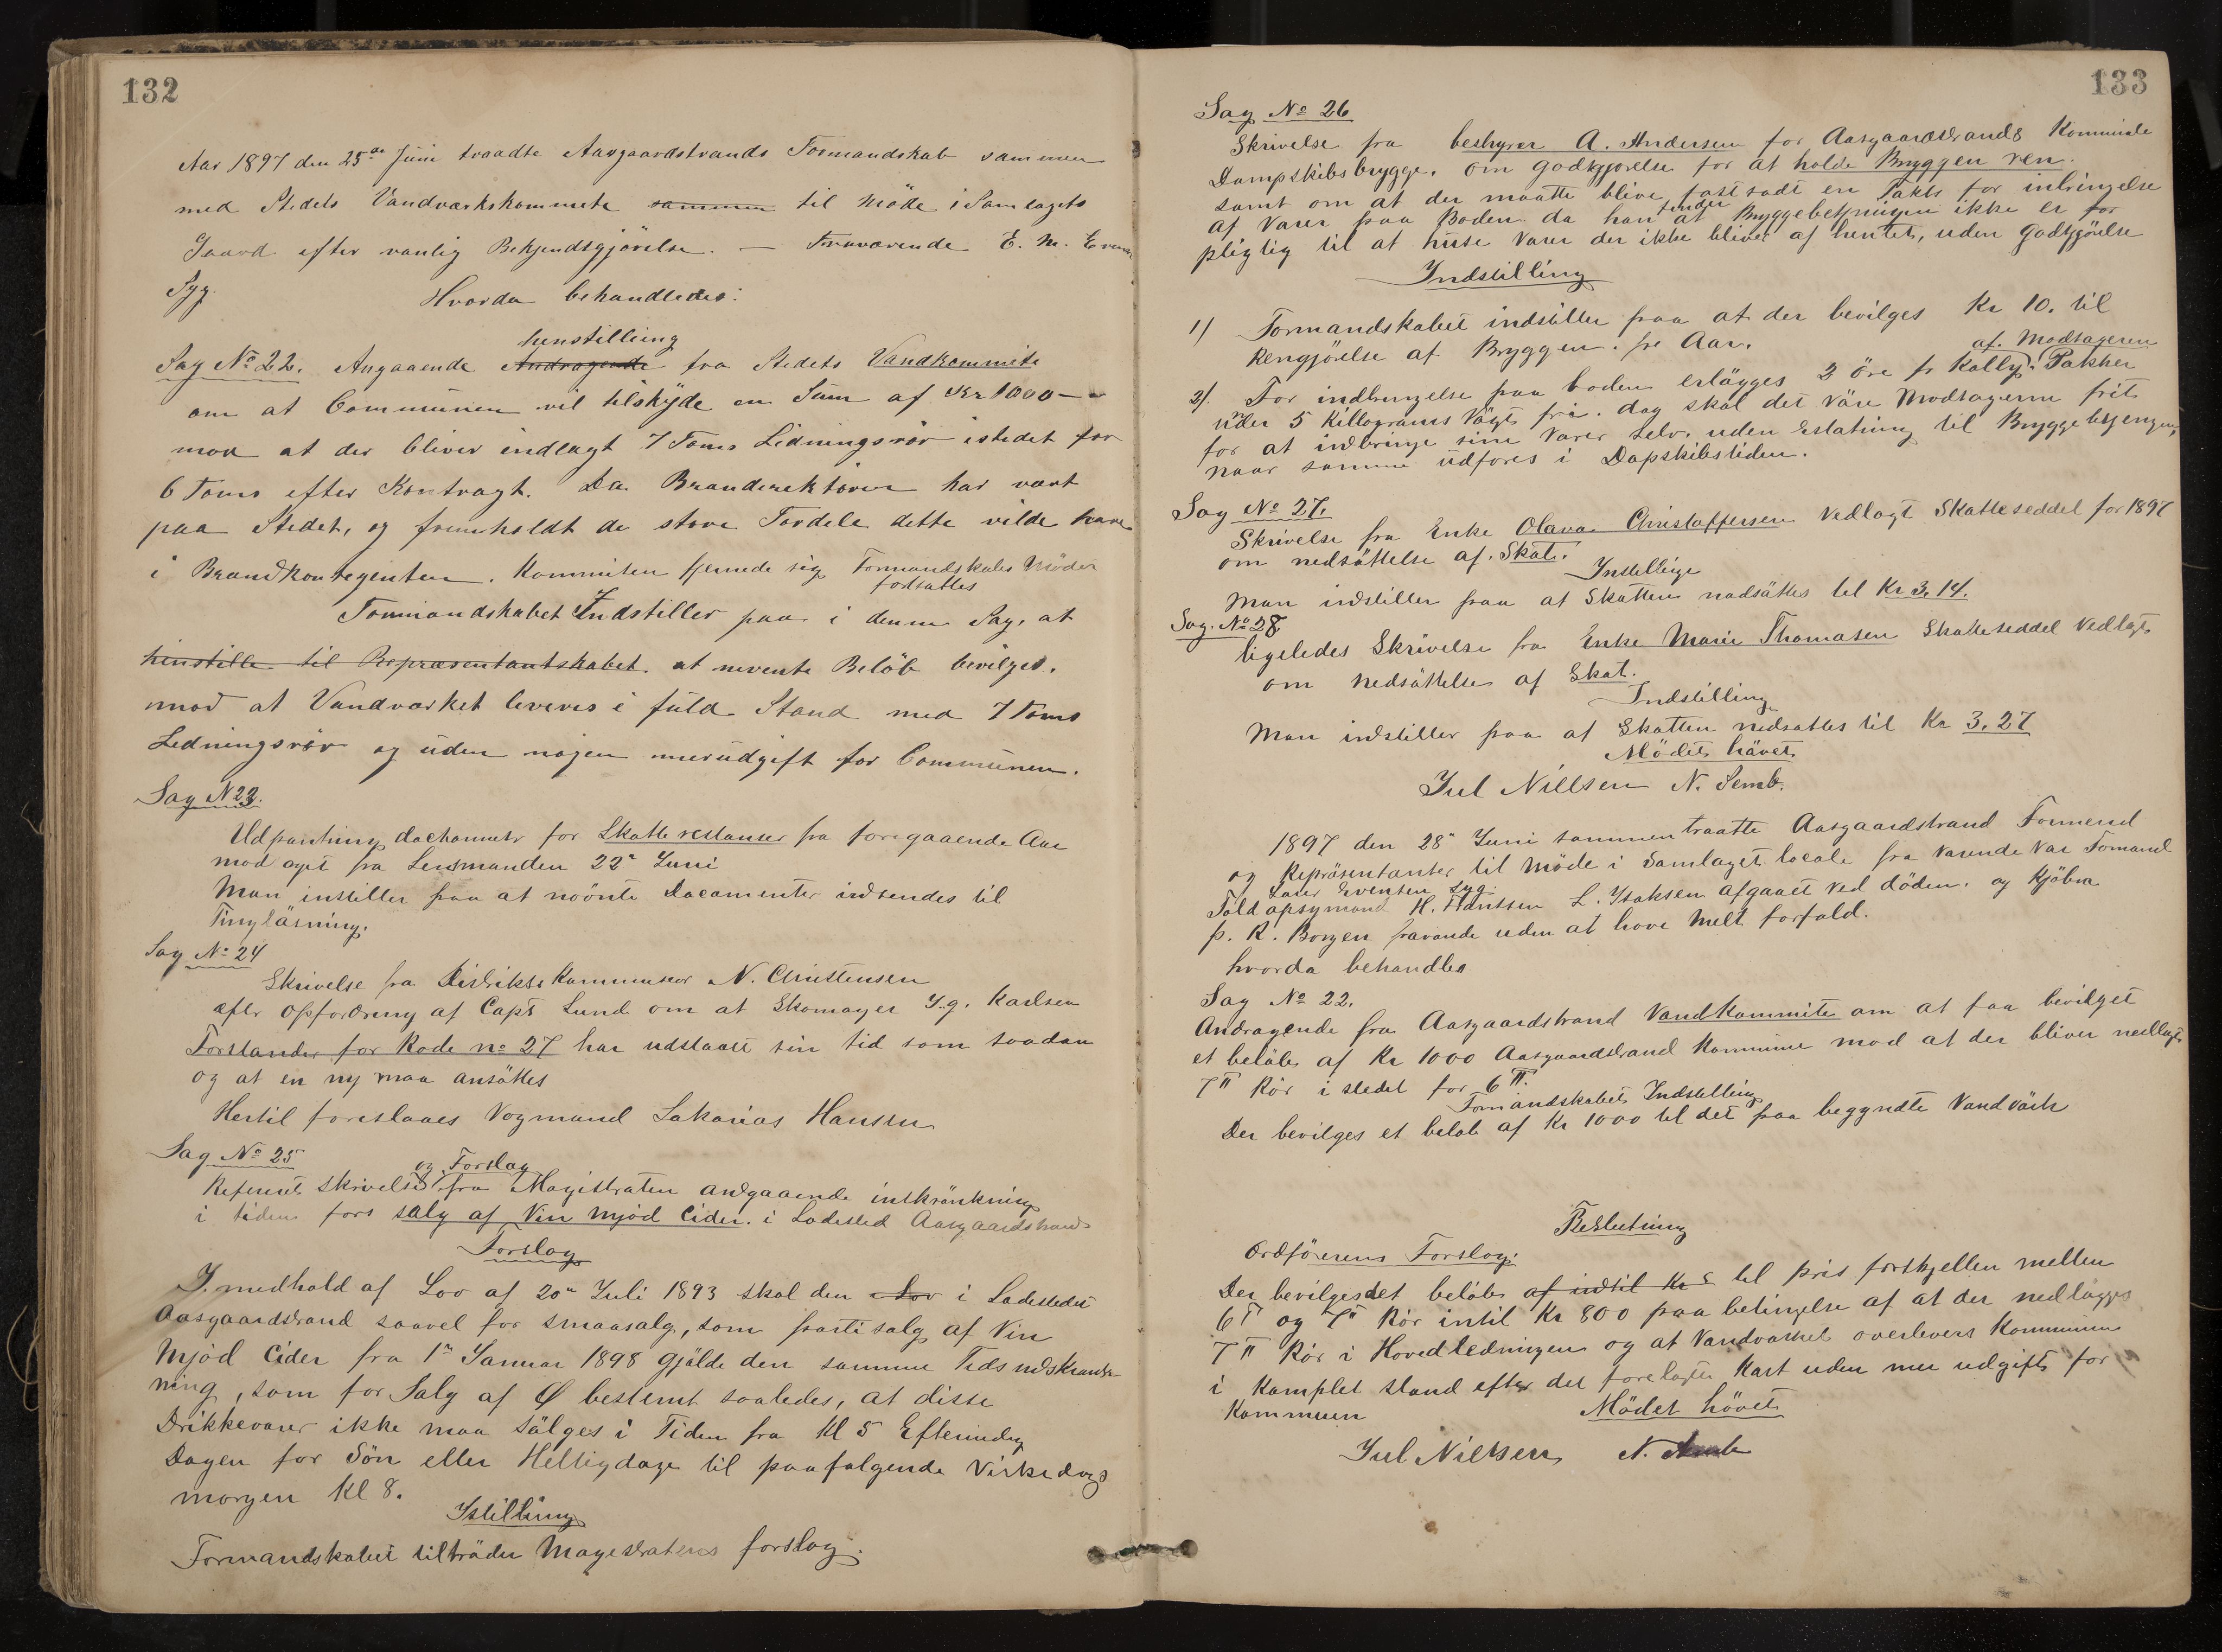 132
Aar 1897 den 25de Juni traadte Aasgaardstrands Formandskab sammen
med Stedets Vandværkskommete sammen til Möde i Samlagets
Gaard efter vanlig Bekjendtgjörelse. — Fraværende E. M. Evens.
Syg. Hvorda behandledes:
henstilling
Sag No 22. Angaaende Andragende fra Stedets Vandkommite
om at Communen vil tilskyde en Sum af Kr 1000 —
mod at der bliver indlagt 7 Toms Ledningsrör istedet for
6 Toms efter Kontragt. Da Branderektören har vært
paa Stedet, og fremholdt de store Fordele dette vilde have
i Brandkontegenten. Kommiten fjernede sig Formandskabes Möder
fortsattes
Formandskabet Indstiller paa i denne Sag, at
henstille til Repræsentantskabet at nevente Belöb bevilges.
mod at Vandværket leveres i fuld Stand med 7 Toms
Ledningsrör og uden nogen merudgift for Communen.
Sag N 23.
Udpantnings dochometer for Skatte restanser fra foregaaende Aar
mod aget fra Lensmanden 22n Juni
Man instiller paa at nöönte Documenter indsendes til
Tinglæsning.
Sag No 24
Skrivelse fra Distrikts Kommuneor N. Christensen
efter opfordring af Capt Lund om at Skomager Y.g. Karlsen
Forstander for Rode no 27 har udstaaet sin tid som saadan
og at en ny maa ansättes
Hertil foreslaaes Vogmand Sakarias Hansen
Sag No 25
og Forslag
Referert Skrivelse fra Magistraten andgaaende inskränkning
i tiden fors salg af Vin Mjöd Cider. i Ladested Aasgaardstrand
Forslag
I medhold af Lov af 20n Juli 1893 skal den Lov i Ladestedet
Aasgaardstrand saavel for smaasalg, som partisalg af Vin
Mjöd Cider fra 1n Januar 1898 gjälde den samme Tids indskränk-
ning, som for Salg af Ø bestemt saaledes, at disse
Drikkevarer ikke maa sälges i Tiden fra Kl 5 Eftermidag
Dagen for Sön eller Helligdage til paafølgende Virkedags
morgen Kl 8.
Istilling
Formandskabet tilträder Magestratens forslag.
133
Sag No 26
Skrivelse fra bestyrer A. Andersen for Aasgaardstrands Kommunale
Dampskibsbrygge. om godtgjörelse for at holde Bryggen ren.
samt om at der maatte blive fastsadt en Takts for inbringelse
af Varer paa Boden da han under at Bryggebetjningen ikke er for
pligtig til at huse Varer der ikke bliver af hentet, uden godtgjörelse
Indstilling
1) Formandskabet indstiller paa at der bevilges Kr 10. til
Rengjörelse af Bryggen. pr Aar.
af. Modtageren
2). For indbringelse paa boden erlägges 3 öre pr Kolly. Pakker
under 5 Killograms Vägt fri. dog skal det väre Modtagerne frit
for at inbringe sine Varer selv. uden Erstatning til Bryggebetjengen,
naar samme udfores i Dapskibstiden.
Sag No 27.
Skrivelse fra Enke Olava Christoffersen Vedlagt Skatteseddel for 1897
om nedsättelse af. Skat.
Instellinge
Man indstiller paa at Skatten nedsättes til Kr 3.14.
Sag. No 28
ligeledes Skrivelse fra Enke Marie Thomasen Skatteseddel Vedlagt
om Nedsättelse af Skat.
Indstilling
Man indstiller paa at Skatten nedsattes til Kr 3.27
Mödet hävet
Jul Nielsen N. Semb.
1897 den 28n Juni sammentraatte Aasgaardstrand Formend
og Repräsentanter til Möde i Samlaget locale fra varende Var Fomand
Laur Eventsen syg.
Told opsymand H. Hantsen L. Ysaksen afgaaet ved döden. og Kjöbm
p. R. Borgen fravande uden at have Melt forfald.
hvorda behandles
Sag No 22.
Andragende fra Aasgaardstrand Vandkommite om at faa bevilget
et belöb af Kr 1000 Aasgaardstrand Kommune mod at der bliver nedlagt
7" Rör i stedet for 6".
Fomandskabets Indstelling
Der bevilges et belöb af Kr 1000 til det paa begyndte Vandvärk
Beslutning
Ordförerens Forslag.
Der bevilges det belöb af indtil Kr 8 til pris forskjellen mellem
6" og 7" Rör intil Kr 800 paa betingelse af at der nedlägges
7" Rör i Hovedledningen og at Vandvarket overlevers Kommunen
i Komplet stand efter det forelagte Kart uden mer udgift for
Kommuen
Mödet hövet
Jul Nielsen N. Semb